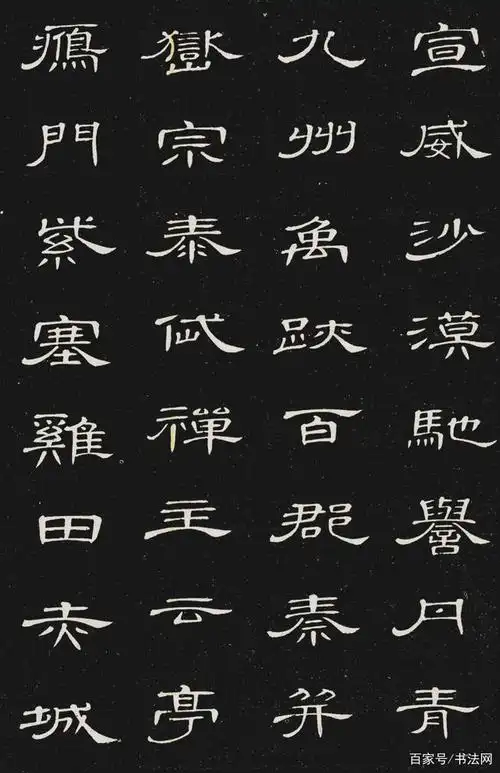 宣威沙漠馳譽丹青
九州禹跡百郡秦并
嶽宗泰岱禪主云亭
鴈門紫塞雞田赤城
百家号/书法网